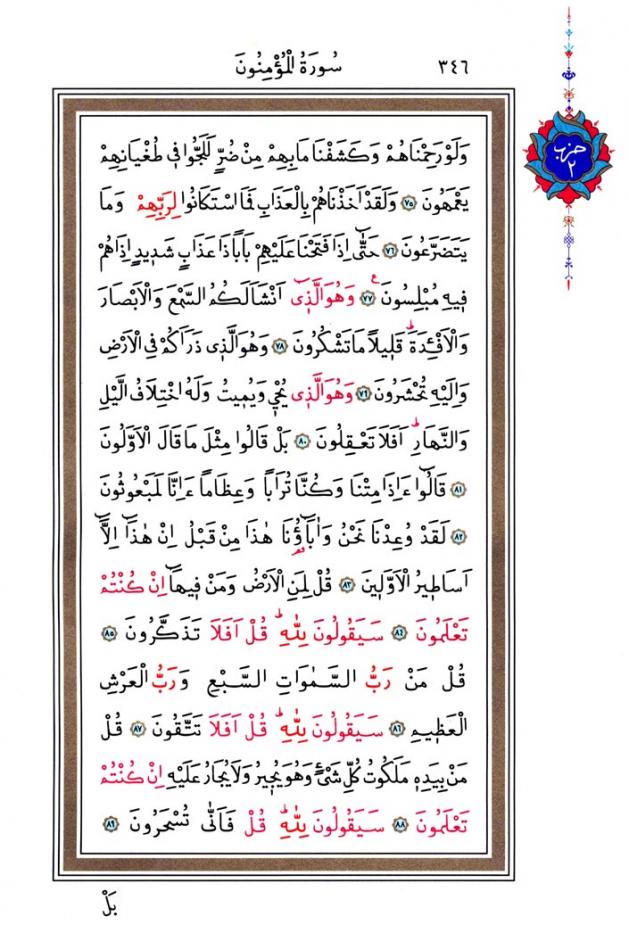 سُورَةُ الْمُؤْمِنُونَ ٣٤٦
حزب
٢
وَلَوْ رَحِمْنَاهُمْ وَكَشَفْنَا مَا بِهِمْ مِنْ ضُرٍّ لَلَجُّوا فٖي طُغْيَانِهِمْ
يَعْمَهُونَ ٧٥ وَلَقَدْ اَخَذْنَاهُمْ بِالْعَذَابِ فَمَا اسْتَكَانُوا لِرَبِّهِمْ وَمَا
يَتَضَرَّعُونَ ٧٦ حَتّٰٓى اِذَا فَتَحْنَا عَلَيْهِمْ بَابًا ذَا عَذَابٍ شَدٖيدٍ اِذَا هُمْ
فٖيهِ مُبْلِسُونَ ع ٧٧ وَهُوَ الَّذٖٓي اَنْشَاَ لَكُمُ السَّمْعَ وَالْاَبْصَارَ
وَالْاَفْـِٔدَةَ ط قَلٖيلًا مَا تَشْكُرُونَ ٧٨ وَهُوَ الَّذٖي ذَرَاَكُمْ فِي الْاَرْضِ
وَاِلَيْهِ تُحْشَرُونَ ٧٩ وَهُوَ الَّذٖي يُحْيٖ وَيُمٖيتُ وَلَهُ اخْتِلَافُ الَّيْلِ
وَالنَّهَارِ ط اَفَلَا تَعْقِلُونَ ٨٠ بَلْ قَالُوا مِثْلَ مَا قَالَ الْاَوَّلُونَ
٨١ قَالُٓوا ءَاِذَا مِتْنَا وَكُنَّا تُرَابًا وَعِظَامًا ءَاِنَّا لَمَبْعُوثُونَ
٨٢ لَقَدْ وُعِدْنَا نَحْنُ وَاٰبَٓاؤُ۬نَا هٰذَا مِنْ قَبْلُ اِنْ هٰذَٓا اِلَّٓا
اَسَاطٖيرُ الْاَوَّلٖينَ ٨٣ قُلْ لِمَنِ الْاَرْضُ وَمَنْ فٖيهَٓا اِنْ كُنْتُمْ
تَعْلَمُونَ ٨٤ سَيَقُولُونَ لِلّٰهِ ط قُلْ اَفَلَا تَذَكَّرُونَ ٨٥
قُلْ مَنْ رَبُّ السَّمٰوَاتِ السَّبْعِ وَرَبُّ الْعَرْشِ
الْعَظٖيمِ ٨٦ سَيَقُولُونَ لِلّٰهِ ط قُلْ اَفَلَا تَتَّقُونَ ٨٧ قُلْ
مَنْ بِيَدِهٖ مَلَكُوتُ كُلِّ شَيْءٍ وَهُوَ يُجٖيرُ وَلَا يُجَارُ عَلَيْهِ اِنْ كُنْتُمْ
تَعْلَمُونَ ٨٨ سَيَقُولُونَ لِلّٰهِ ط قُلْ فَاَنّٰى تُسْحَرُونَ ٨٩
بَلْ